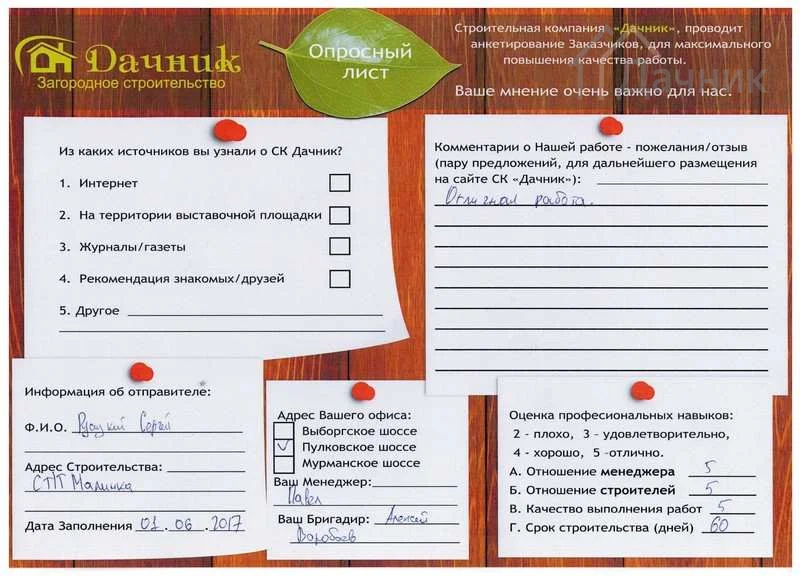 Дачник
Загородное строительство
Опросный
лист
Строительная компания «Дачник», проводит
анкетирование Заказчиков, для максимального
повышения качества работы.
Ваше мнение очень важно для нас.
Дачник
Из каких источников вы узнали о СК Дачник?
1. Интернет
2. На территории выставочной площадки
3. Журналы/газеты
4. Рекомендация знакомых/друзей
5. Другое
Комментарии о Нашей работе - пожелания/отзыв
(пару предложений, для дальнейшего размещения
на сайте СК «Дачник»):
Отличная работа.
Информация об отправителе:
Ф.И.О. Сергей
Адрес Строительства:
СНТ Малинка
Дата Заполнения 01.06.2017
Адрес Вашего офиса:
Выборгское шоссе
Пулковское шоссе
Мурманское шоссе
Ваш Менеджер:
Павел
Ваш Бригадир: Алексей
Воробьев
Оценка професиональных навыков:
2 - плохо, 3 - удовлетворительно,
4 - хорошо, 5 -отлично.
А. Отношение менеджера 5
Б. Отношение строителей 5
В. Качество выполнения работ 5
Г. Срок строительства (дней) 60